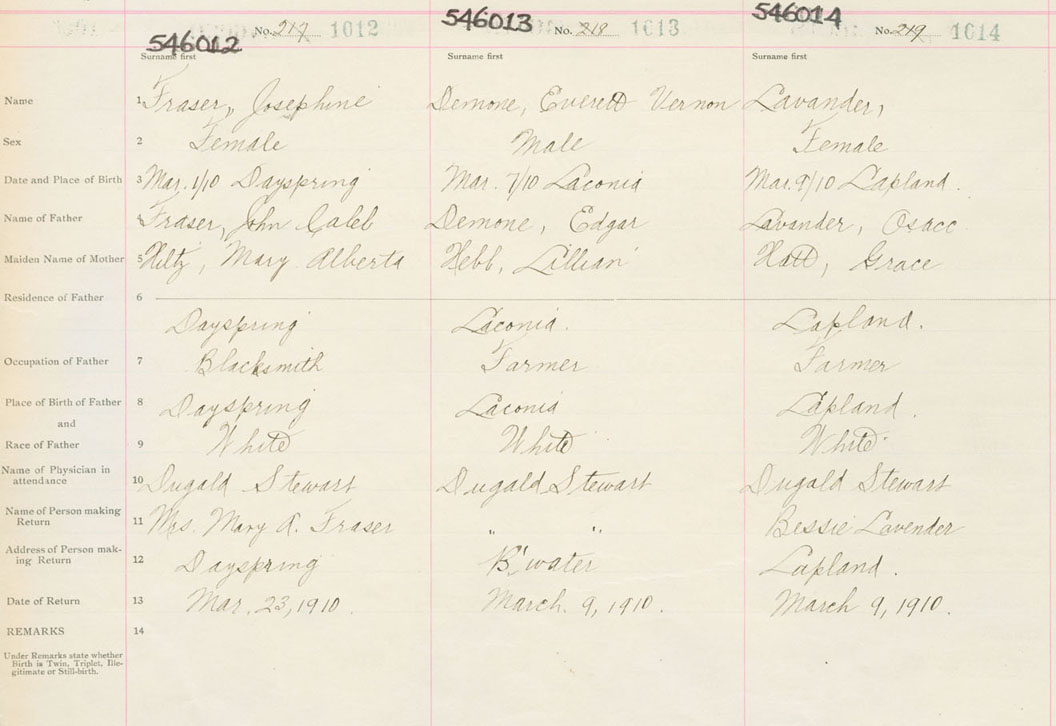 546012 546013 546014
No. 217 1012 No. 218 1013 No. 219 1014
Surname first Surname first Surname first
Name 1 Fraser, Josephine Demone, Everett Vernon Lavander,
Sex 2 Female Male Female
Date and Place of Birth 3 Mar. 1/10 Dayspring Mar. 7/10 Laconia Mar. 9/10 Lapland.
Name of Father 4 Fraser, John Caleb Demone, Edgar Lavander, Osacc
Maiden Name of Mother 5 Hiltz, Mary Alberta Hebb, Lillian Hatt, Grace
Residence of Father 6
Dayspring Laconia. Lapland.
Occupation of Father 7 Blacksmith Farmer Farmer
Place of Birth of Father 8 Dayspring Laconia Lapland.
and
Race of Father 9 White White White
Name of Physician in
attendance 10 Dugald Stewart Dugald Stewart Dugald Stewart
Name of Person making
Return 11 Mrs. Mary A. Fraser " " Bessie Lavender
Address of Person mak-
ing Return 12 Dayspring B'water Lapland.
Date of Return 13 Mar. 23, 1910. March. 9, 1910. March 9, 1910.
REMARKS 14
Under Remarks state whether
Birth is Twin, Triplet, Ille-
gitimate or Still-birth.